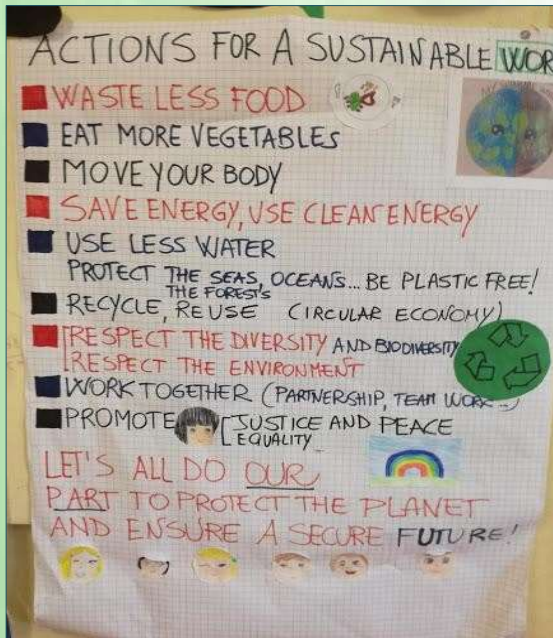 ACTIONS FOR A SUSTAINABLE WOR
WASTE LESS FOOD
EAT MORE VEGETABLES
MOVE YOUR BODY
SAVE ENERGY, USE CLEAN ENERGY
USE LESS WATER
PROTECT THE SEAS, OCEANS... BE PLASTIC FREE!
THE FOREST'S
RECYCLE, REUSE (CIRCULAR ECONOMY)
RESPECT THE DIVERSITY AND BIODIVERSITY
RESPECT THE ENVIRONMENT
WORK TOGETHER (PARTNERSHIP, TEAM WORK...)
PROMOTE JUSTICE AND PEACE
EQUALITY
LET'S ALL DO OUR
PART TO PROTECT THE PLANET
AND ENSURE A SECURE FUTURE!